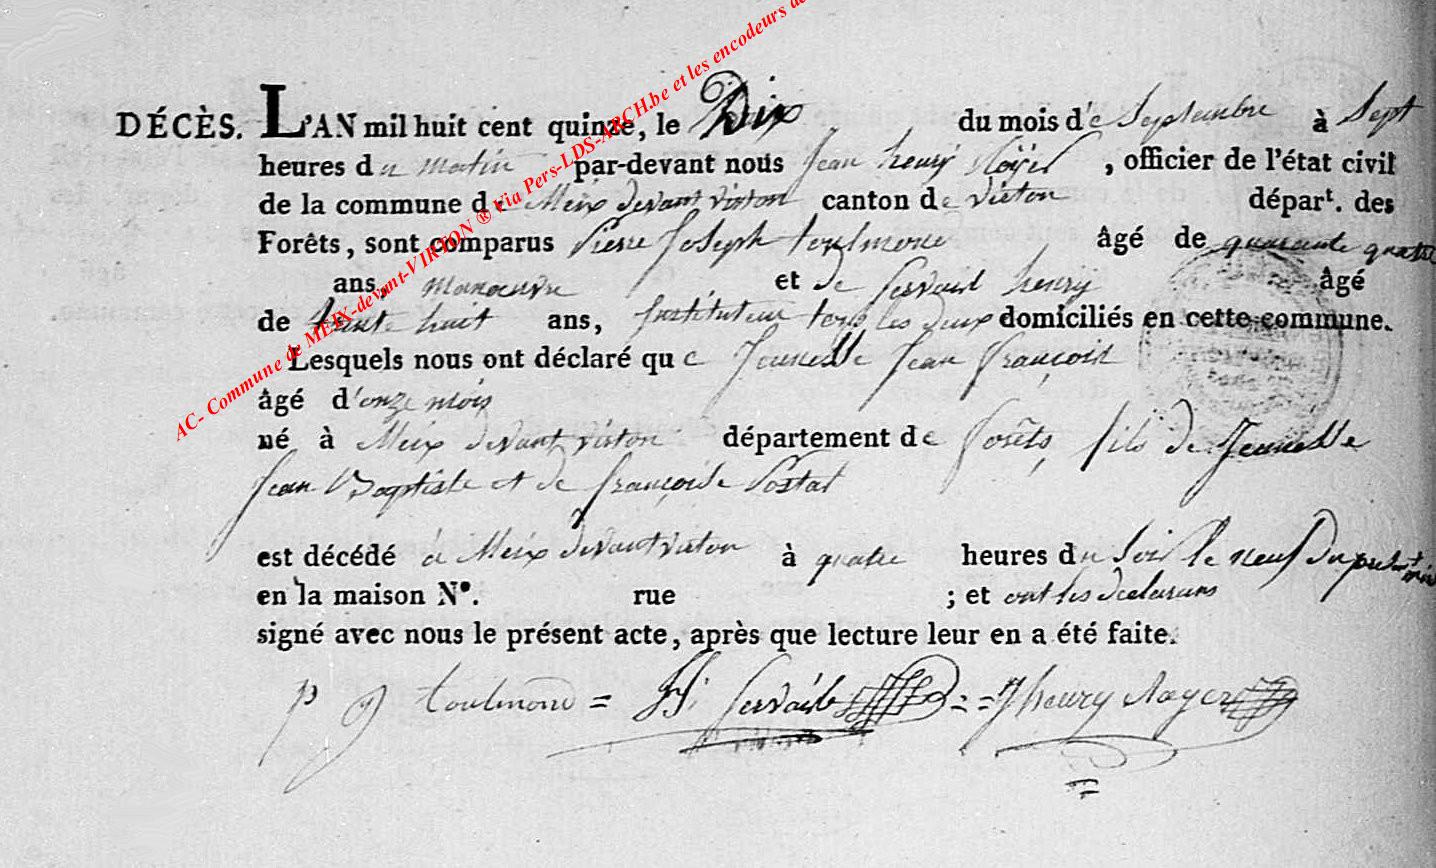 AC- Commune de MEIX-devant-VIRTON ® Via Pers-LDS-ARCH.be et les encodeurs de
DÉCÈS. L'AN mil huit cent quinze, le Dix du mois de Septembre à Sept
heures du matin par-devant nous Jean henry , officier de l'état civil
de la commune de Meix devant virton canton de virton départ. des
Forêts, sont comparus Pierre Joseph toulmond âgé de quarante quatre
ans, manoeuvre et de Servais henry âgé
de trente huit ans, Instituteur tous les deux domiciliés en cette commune.
Lesquels nous ont déclaré que Jeunelle Jean françois
âgé d'onze mois
né à Meix devant virton département de forêts, fils de Jeunelle
Jean Baptiste et de françoise
est décédé à Meix devant virton à quatre heures du soir le neuf du
en la maison N°. rue ; et ont les declarans
signé avec nous le présent acte, après que lecture leur en a été faite.
p j toulmond = Servais = = J henry